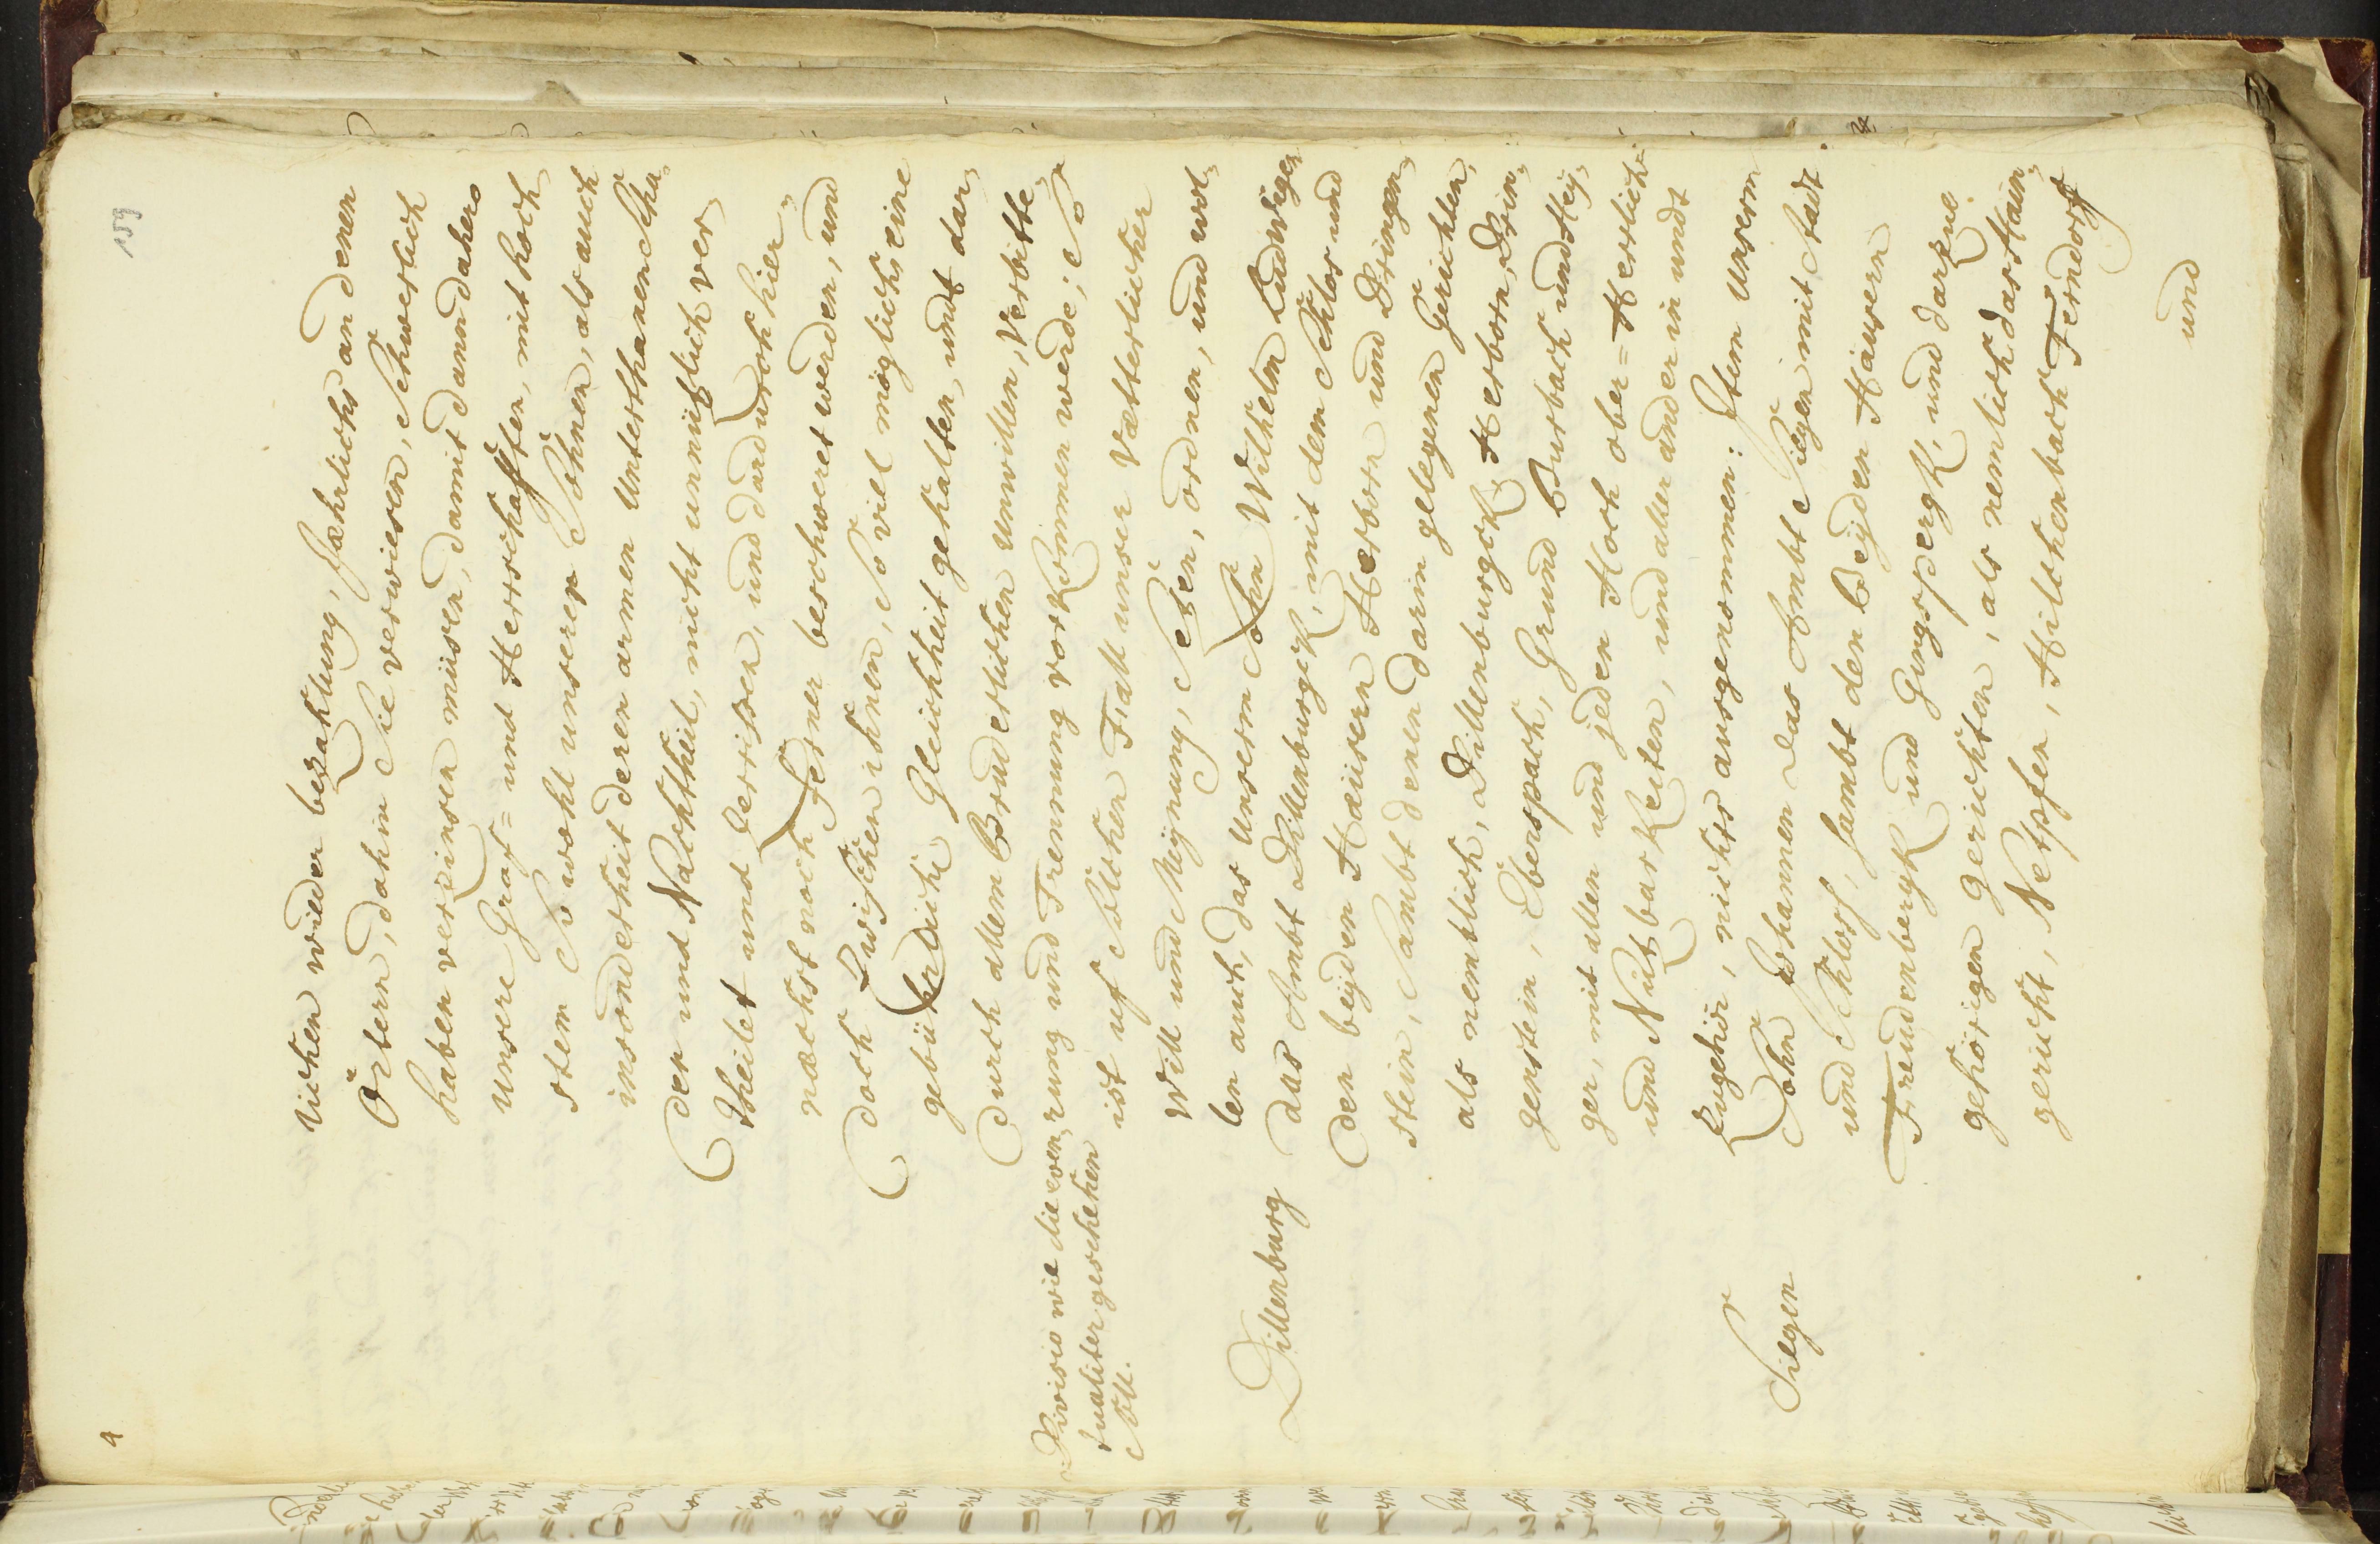 159
4
lichen wieder bezahlung, Jaehrlichs an denen
Örtern, dahin Sie verwiesen, Schwerlich
haben verzinsen müsen, damit dann dahero
unsere Graf= und Herrschafften, mit hoch„
stem So wohl unseren Söhnen, als auch
insonderheit deren armen Unterthanen Scha„
den und Nachtheil, nicht unnützlich ver„
theilet und Zerrissen, und dardurch hier„
naechst noch Ferner beschweret werden, und
doch Zwischen ihnen, So viel möglichs eine
gebührliche Gleichheit gehalten, undt dar„
durch allem Brüderlichen unwillen, Verbitte„
rung und Trennung vorkommen werde; So
ist uf Solchen Fall unser Vätterlicher
Will und Meÿnung, Setzen, ordnen, und wol„
len auch, das unserm Sohn Wilhelm Ludwigen
das Ambt Dillenburgck, mit dem Schlos und
den beÿden Haüsern Herborn und Dringen„
stein, Sambt denen darin gelegenen Gerichten,
als nemblich, Dillenburgck, Herborn, Drin„
genstein, Eberspach, Grund Burbach und Heÿ„
ger, mit allen und jeden Hoch ober= Herrlich=
und Nützbarkeiten, und aller anderin undt
zugehör, nichts ausgenommen: Item Unserm
Sohn Johannen das Ambt Siegen mit Stadt
und Schloss, sambt den beÿden Haüsern
Freudenbergk und Gingspergk, und darzue
gehörigen gerichten, als nemlich das Hain„
gericht, Netpfen, Hilchenbach Ferndorf
und
Divisio wie die even„
tualiter geschehen
Soll.
Dillenburg
Siegen